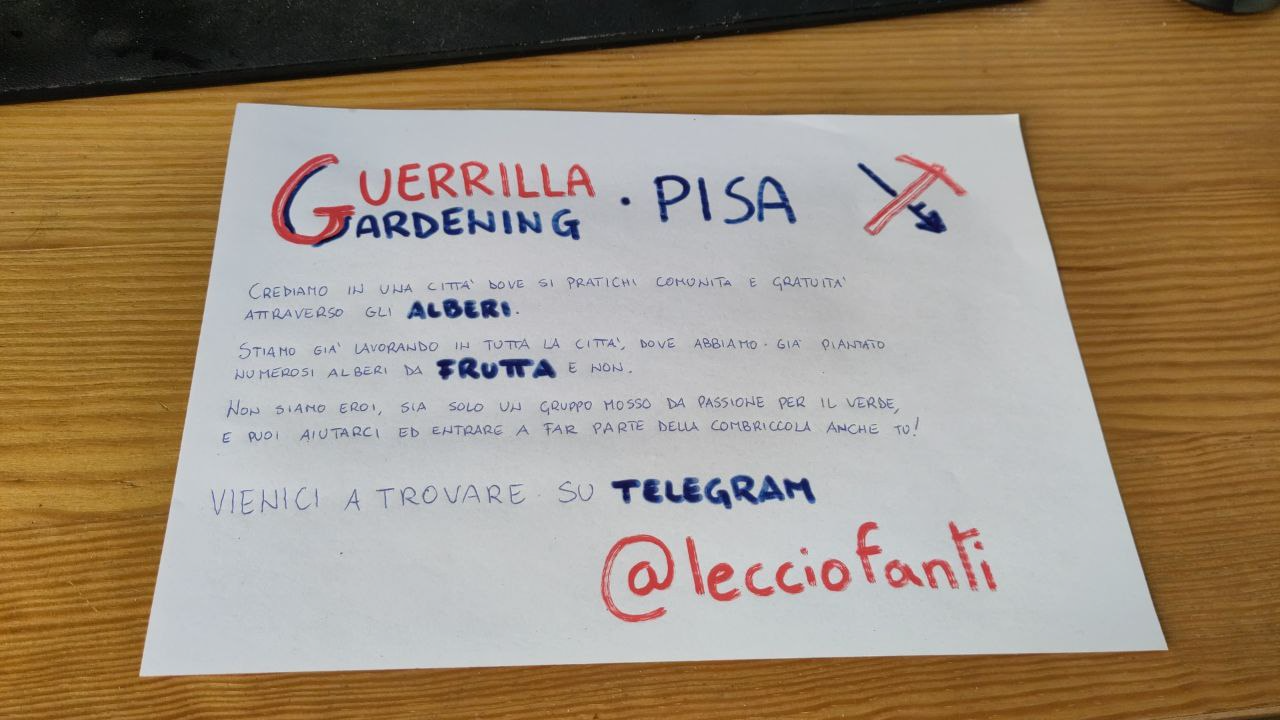 GUERRILLA GARDENING · PISA
CREDIAMO IN UNA CITTA' DOVE SI PRATICHI COMUNITA E GRATUITA'
ATTRAVERSO GLI ALBERI.
STIAMO GIA' LAVORANDO IN TUTTA LA CITTA', DOVE ABBIAMO GIA' PIANTATO
NUMEROSI ALBERI DA FRUTTA E NON.
NON SIAMO EROI, SIA SOLO UN GRUPPO MOSSO DA PASSIONE PER IL VERDE,
E PUOI AIUTARCI ED ENTRARE A FAR PARTE DELLA COMBRICCOLA ANCHE TU!
VIENICI A TROVARE SU TELEGRAM
@lecciofanti